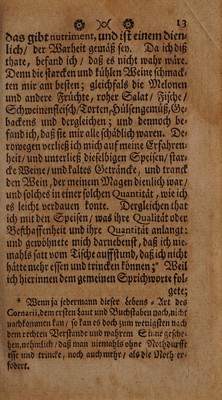 13
das gibt nutriment, und ist einem dien-
lich/ der Warheit gemäß sey. Da ich diß
thate, befand ich/ daß es nicht wahr wäre.
Denn die starcken und kühlen Weine schmack-
ten mir am besten; gleichfals die Melonen
und andere Früchte, roher Salat/ Fische/
Schweinenfleisch/Torten/Hülsengemüß, Ge-
backens und dergleichen; und dennoch be-
fand ich, daß sie mir alle schädlich waren. De-
rowegen verließ ich mich auf meine Erfahren-
heit/ und unterließ dieselbigen Speisen/ star-
cke Weine/ und kaltes Geträncke, und tranck
den Wein, der meinem Magen dienlich war/
und solches in einer solchen Quantität, wie ich
es leicht verdauen konte. Dergleichen that
ich mit den Speisen/ was ihre Qualität oder
Beschaffenheit und ihre Quantität anlangt:
und gewöhnete mich darnebenst, daß ich nie-
mahls satt vom Tische auffstund, daß ich nicht
hätte mehr essen und trincken können;* Weil
ich hierinnen dem gemeinen Sprichworte fol-
gete;
* Wenn ja jedermann dieser Lebens-Art des
Cornarii, dem ersten Laut und Buchstaben nach, nicht
nachkommen kan/ so kan es doch zum wenigsten nach
dem rechten Verstande und wahrem Sinne gesche-
hen, nehmlich/ daß man niemahls ohne Nothdurfft
esse und trincke, noch auch mehr/ als die Noth er-
fodert.